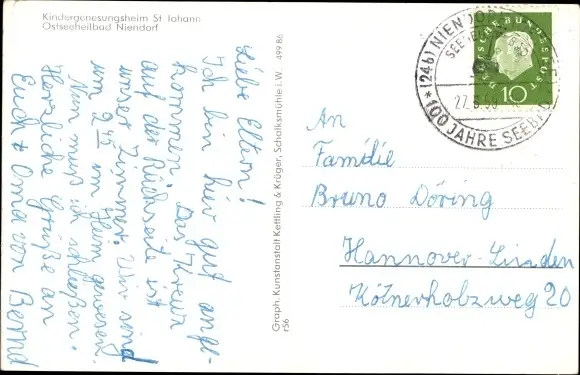 Kindergenesungsheim St. Johann
Ostseeheilbad Niendorf
Liebe Eltern!
Ich bin hier gut ange-
kommen. Das Kreuz
auf der Rückseite ist
unser Zimmer. Wir sind
um 9.45 im Heim gewesen.
Nun muß ich schließen.
Herzliche Grüße an
Euch + Oma von Bernd
499 86
Graph. Kunstanstalt Kettling & Krüger, Schalksmühle i. W.
r56
(24b) NIENDORF
27.8.59
100 JAHRE SEEB
DEUTSCHE BUNDESPOST
10
An
Familie
Bruno Döring
Hannover-Linden
Kötnerholzweg 20